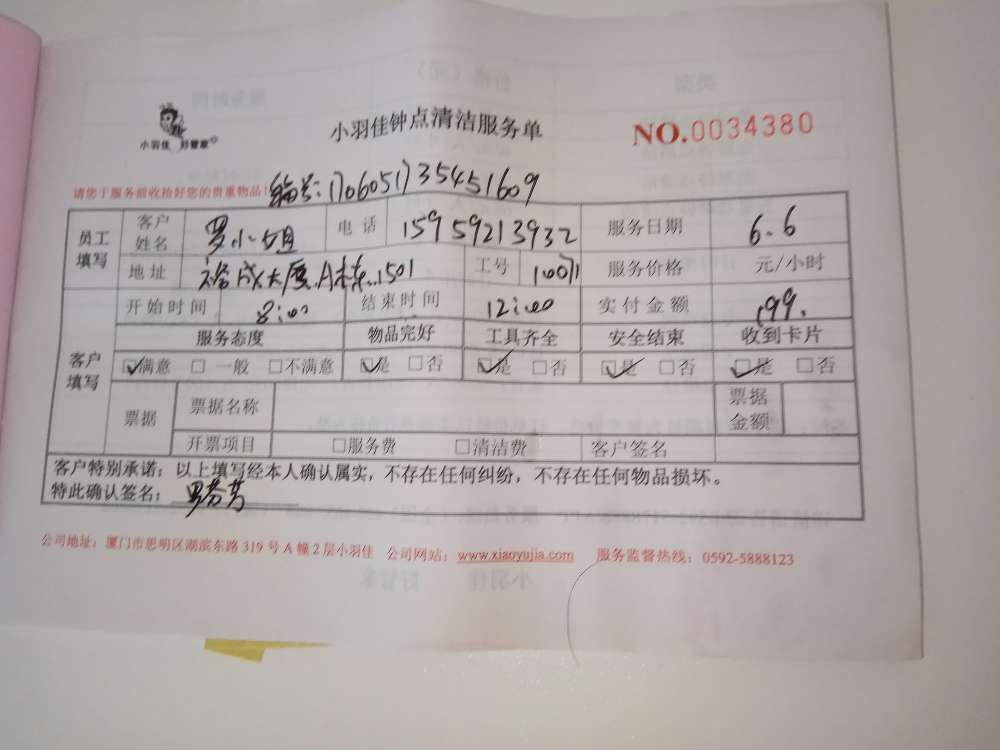 小羽佳 好管家
小羽佳钟点清洁服务单
NO.0034380
请您于服务前收拾好您的贵重物品!
编号:1706051735451609
员工填写 客户姓名 罗小姐 电话 15959213932 服务日期 6.6
地址 裕成大厦A栋1501 工号 服务价格 元/小时
客户填写 开始时间 8:00 结束时间 12:00 实付金额 199.
服务态度 物品完好 工具齐全 安全结束 收到卡片
☑满意 □一般 □不满意 ☑是 □否 ☑是 □否 ☑是 □否 ☑是 □否
票据 票据名称 票据金额
开票项目 □服务费 □清洁费 客户签名
客户特别承诺:以上填写经本人确认属实,不存在任何纠纷,不存在任何物品损坏。
特此确认签名:
公司地址:厦门市思明区湖滨东路319号A幢2层小羽佳 公司网站:www.xiaoyujia.com 服务监督热线:0592-5888123